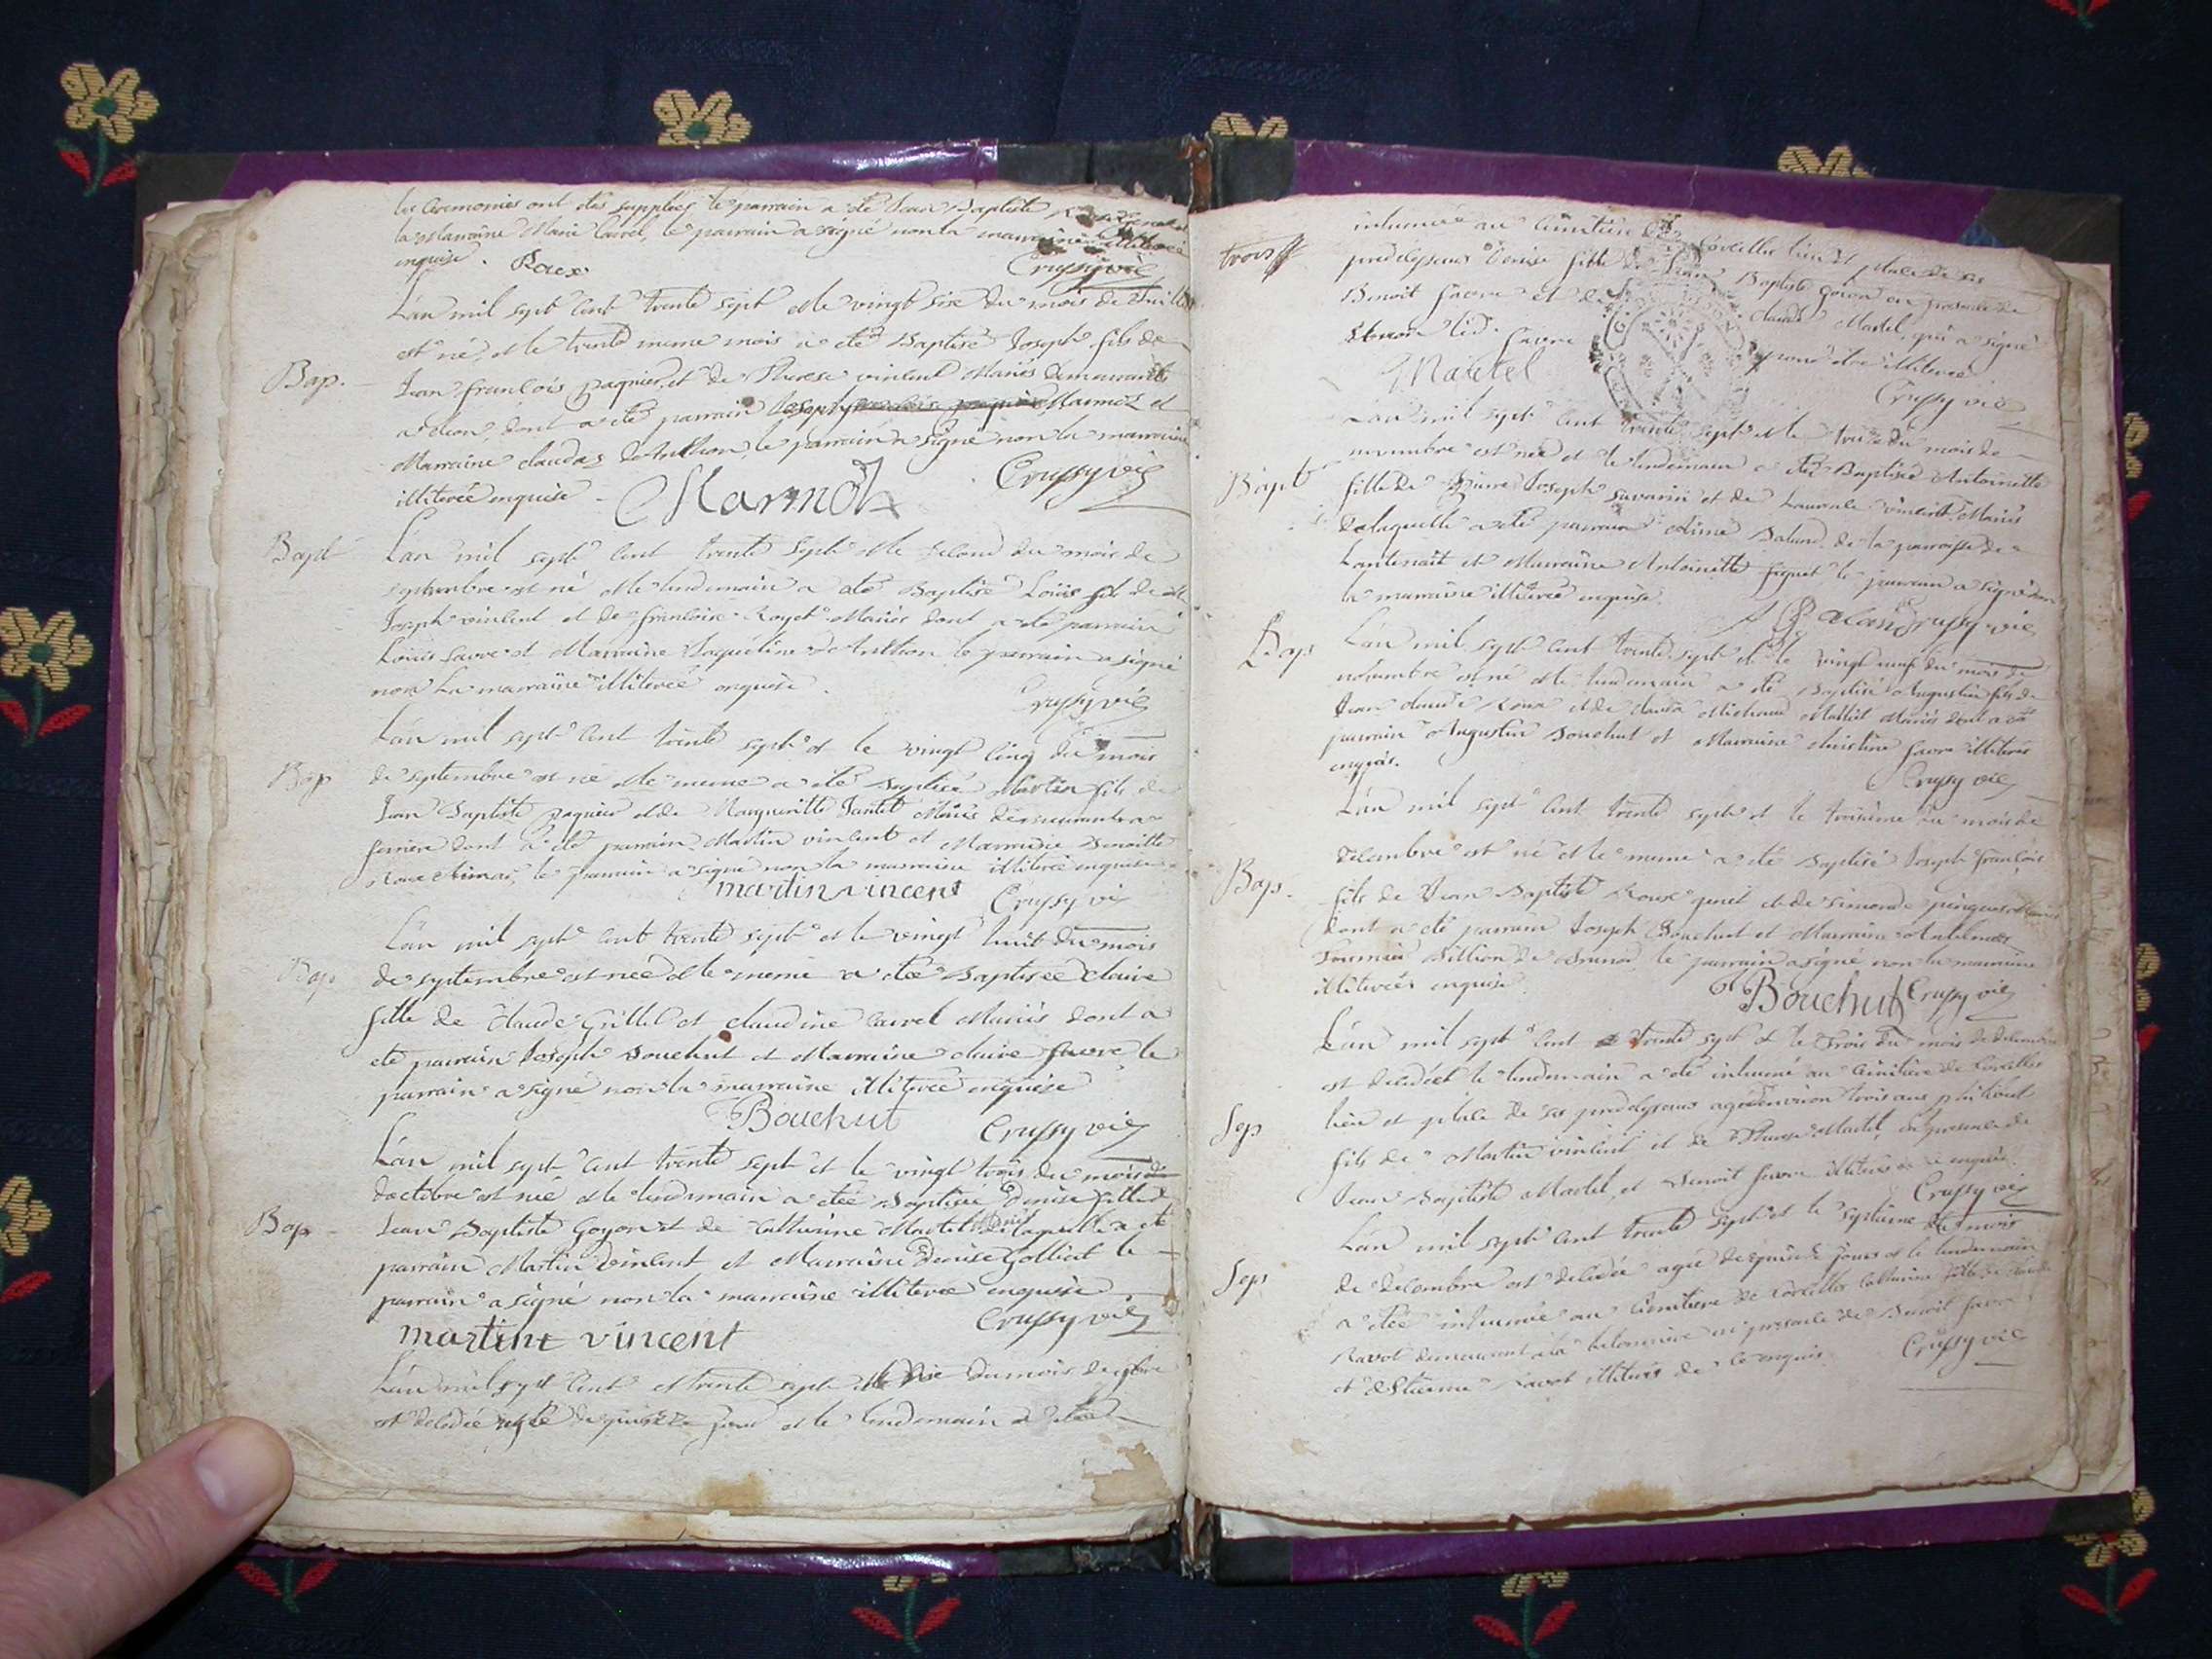 les Ceremonies ont étés supplées le parrain a été Jean Baptiste
la Marraine Marie Carrel, le parrain a signé non la marraine illiterée
enquise. Roux
Crussy vic
L'an mil sept cent trente sept et le vingt six du mois de Juillet
est né, et le trente meme mois a été Baptisé Joseph fils de
Bap.
Jean françois paquier et de Therese vincent Mariés demeurants
a dont a été parrain Joseph Marmot et
Marraine claudaz le parrain a signé non la marraine
illiterée enquise
Marmot
Crussy vic
Bapt
L'an mil sept cent trente sept et le second du mois de
septembre est né et le lendemain a été Baptisé Louis fils de
Joseph vincent et de françoise Royet Mariés dont a été parrain
Louis favre et Marraine Jaqueline le parrain a signé
non la marraine illiterée enquise.
Crussy vic
L'an mil sept cent trente sept et le vingt cinq du mois
Bap
de septembre est né et le meme a été Baptisé Martin fils de
Jean Baptiste paquier et de Margueritte Jantet Mariés demeurants a
ferriere dont a été parrain Martin vincent et Marraine Benoitte
Roux le parrain a signé non la marraine illiterée enquise
martin vincent
Crussy vic
L'an mil sept cent trente sept et le vingt huit du mois
Bap.
de septembre est née et le meme a été Baptisée claire
fille de claude Grillet et claudine Carrel Mariés dont a
été parrain Joseph Bouchut et Marraine claire favre le
parrain a signé non la marraine illiterée enquise
Bouchut
Crussy vic
L'an mil sept cent trente sept et le vingt trois du mois
d'octobre est née et le lendemain a été Baptisée Denise fille de
Bap
Jean Baptiste Goyon et de Catherine Martel Mariés de laquelle a été
parrain Martin vincent et Marraine Denise Golliat le
parrain a signé non la marraine illiterée enquise
Crussy vic
martint vincent
L'an mil sept cent et trente sept et le du mois de 9bre
est decedée agée de quinze jours et le lendemain a été
inhumée au Cimitiere de Corcelles lieu et place de ses
trois
predecesseurs Denise fille de Jean Baptiste Goyon en presence de
Benoit favre et de claude Martel, qui a signé
non led. favre pour etre illiteré
Martel
Crussy vic
L'an mil sept cent trente sept et le du mois de
novembre est née et le lendemain a été Baptisée Antoinette
Bapt
fille de pierre Joseph Savarin et de Laurence vincent Mariés
de laquelle a été parrain Aimé Baland de la paroisse de
Lantenait et Marraine Antoinette figuet le parrain a signé non
la marraine illiterée enquise.
Crussy vic
Bap
L'an mil sept cent trente sept et le vingt neuf du mois de
novembre est né et le lendemain a été Baptisé Augustin fils de
Jean claude Roux et de clauda Michaud Mariés dont a été
parrain Augustin Bouchut et Marraine christine favre illiterés
enquis.
Crussy vic
L'an mil sept cent trente sept et le troisieme du mois de
decembre est né et le meme a été Baptisé Joseph françois
Bap.
fils de Jean Baptiste Roux genet et de Simonde
dont a été parrain Joseph Bouchut et Marraine
fournier le parrain a signé non la marraine
illiterée enquise.
Bouchut
Crussy vic
L'an mil sept cent trente sept et le trois du mois de decembre
est decedé et le lendemain a été inhumé au Cimitiere de Corcelles
lieu et place de ses predecesseurs agé d'environ trois ans philibert
Sep
fils de Martin vincent et de Therese Martel, en presence de
Jean Baptiste Martel, et Benoit favre illiterés de ce enquis.
Crussy vic
L'an mil sept cent trente sept et le septieme du mois
Sep
de decembre est decedée agée de quinze jours et le lendemain
a été inhumée au Cimitiere de Corcelles Catherine fille de
Ravot demeurant a la en presence de Benoit favre
et d'Etienne Ravot illiterés de ce enquis
Crussy vic